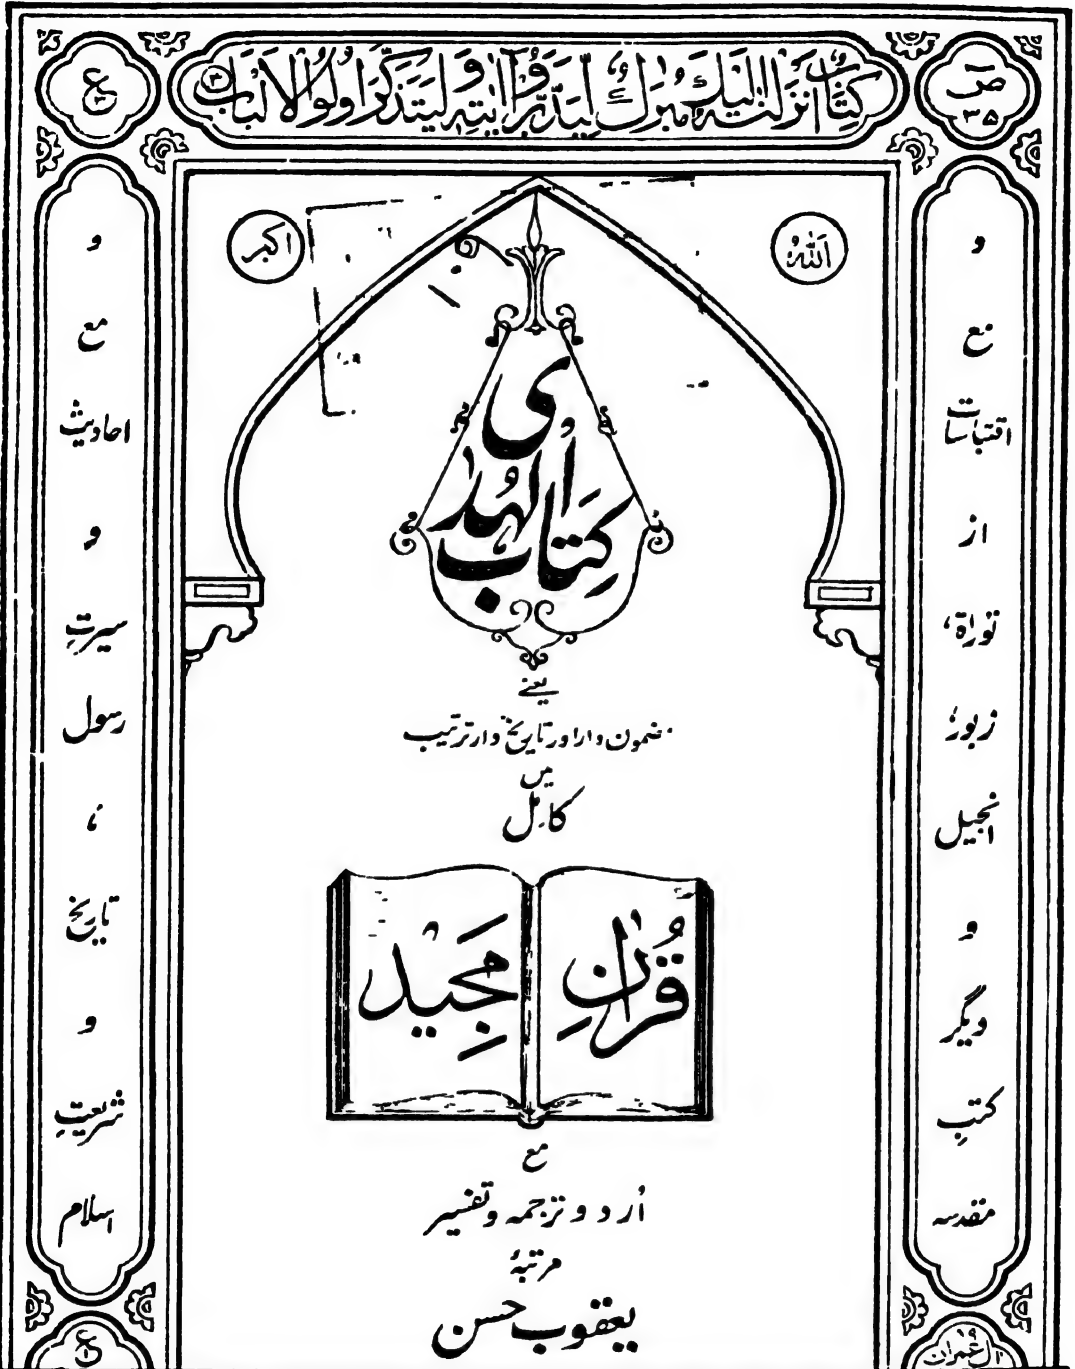 ص
۳۵
كِتٰبٌ اَنْزَلْنٰهُ اِلَيْكَ مُبٰرَكٌ لِّيَدَّبَّرُوْٓا اٰيٰتِهٖ وَلِيَتَذَكَّرَ اُولُوا الْاَلْبَابِ
ع
۳
اَللّٰهُ
اکبر
کِتابُ الہُدٰی
یعنے
مضمون وار اور تاریخ وار ترتیب
میں
کامل
قُرْاٰنِ مَجِیْد
مع
اُردو ترجمہ و تفسیر
مرتبۂ
یعقوب حسن
و
مع
اقتباسات
از
توراۃ،
زبور،
انجیل
و
دیگر
کتبِ
مقدسہ
و
مع
احادیث
و
سیرتِ
رسول
،
تاریخ
و
شریعتِ
اسلام
۱۹
اٰل عمران
ع